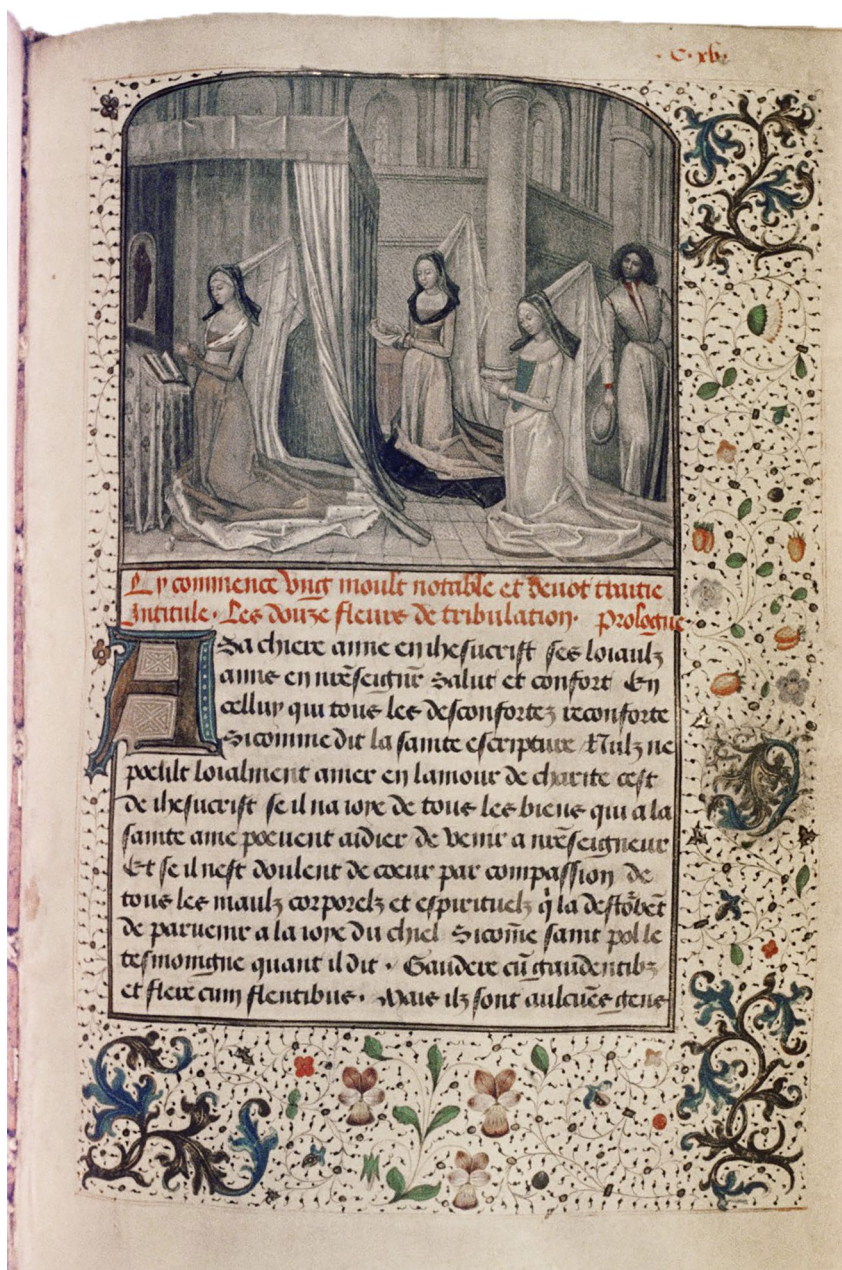 C. xv.
Cy commence ung moult notable et devot traitie
Intitule. Les douze fleurs de tribulation. Prologue
A Sa chiere ame en ihesucrist ses loiaulz
amis en nrẽseignr̃ Salut et confort En
celluy qui tous les desconfortez reconforte
Sicomme dit la sainte escripture Nulz ne
poeult loialment amer en lamour de charite cest
de ihesucrist se il na ioye de tous les biens qui a la
sainte ame poeuent aidier de venir a nrẽseigneur
Et se il nest doulent de coeur par compassion de
tous les maulz corporelz et espirituelz q̃ la destõbẽt
de parvenir a la ioye du chiel Sicom̃e saint pol le
tesmoingne quant il dit. Gaudere cũ gaudentibꝫ
et flere cum flentibus. Mais ilz sont aulcũes gens